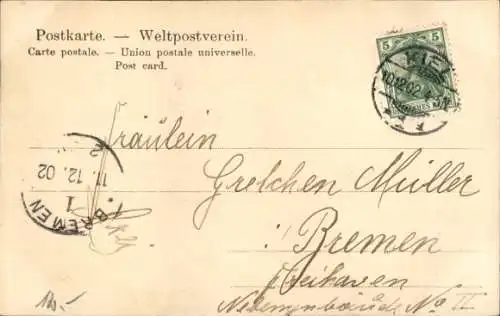 Postkarte. — Weltpostverein.
Carte postale. — Union postale universelle.
Post card.
5 5
KIEL
10.12.02
BREMEN
1
11.12.02
Fräulein
Gretchen Müller
Bremen
Freihaven
Nebengebäude No II
120.-